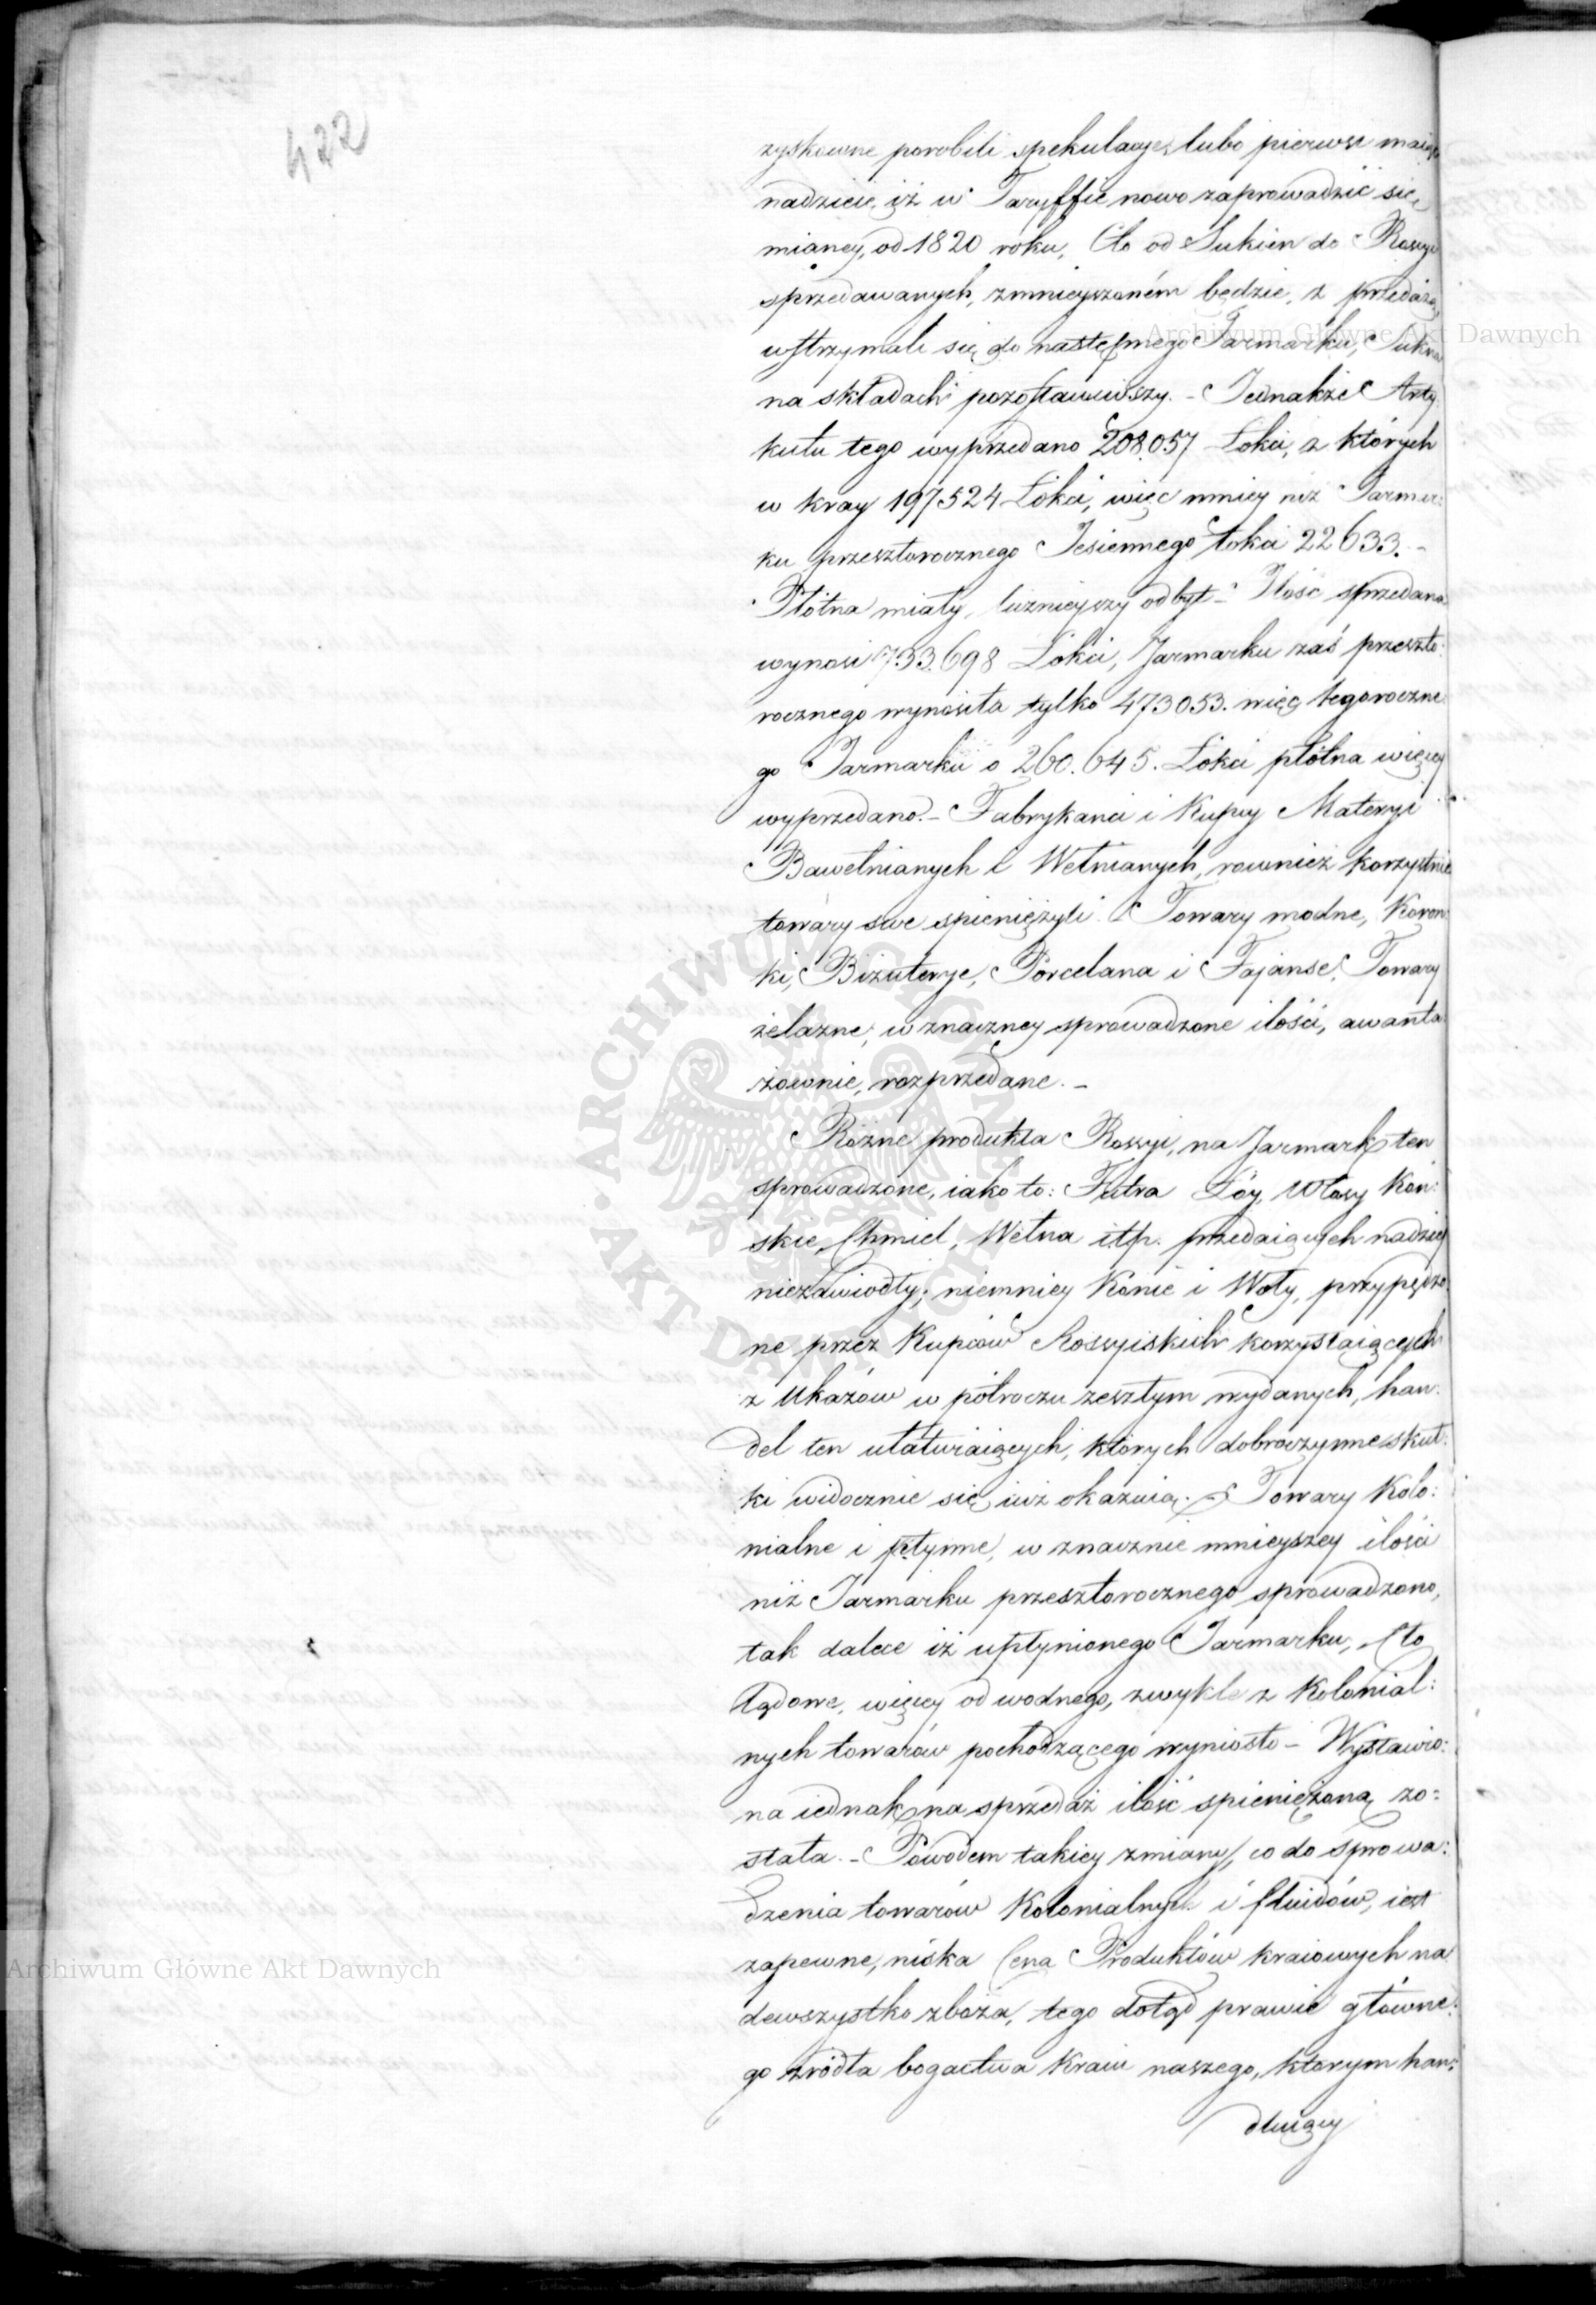 422
zyskowne porobili spekulacye, lubo pierwsi maiąc
nadzieię, iż w Taryffie nowo zaprowadzić się
mianey, od 1820 roku, Cło od Sukien do Rossyi
sprzedawanych, zmnieyszoném będzie, z przedażą
wstrzymali się do następnego Jarmarku, Sukna
na składach pozostawiwszy. - Jednakże Arty
kułu tego wyprzedano 208.057 Łokci, z których
w kray 197524 Łokci, więc mniey niż Jarmar:
ku przeszłorocznego Jesiennego Łokci 22633. -
Płótna miały licznieyszy odbyt - Ilość sprzedana
wynosi 733.698 Łokci, Jarmarku zaś przeszło:
rocznego wynosiła tylko 473053. więc tegoroczne
go Jarmarku o 260.645. Łokci płótna więcey
wyprzedano. - Fabrykanci i Kupcy Materyi
Bawełnianych i Wełnianych, rownież korzystnie
towary swe spieniężyli. Towary modne, Koron
ki, Biżuterye, Porcelana i Fajanse, Towary
żelazne, w znaczney sprowadzone ilości, awanta
żownie, rozprzedane. -
Różne produkta Rossyi, na Jarmark ten
sprowadzone, iako to: Futra Łóy, Włosy Koń:
skie, Chmiel, Wełna itp. przedaiących nadziei
niezawiodły; niemniey Konie i Woły, przypędzo
ne przez Kupców Rossyiskich korzystaiących
z Ukazów w półroczu zeszłym wydanych, han:
del ten ułatwiaiących, których dobroczynne skut:
ki widocznie się iuż okazuią. - Towary Kolo:
nialne i płynne, w znacznie mnieyszey ilości
niż Jarmarku przeszłorocznego sprowadzono,
tak dalece iż upłynionego Jarmarku, Cło
lądowe, więcey od wodnego, zwykle z Kolonial:
nych towarów pochodzącego wyniosło - Wystawio:
na iednak na sprzedaż ilość spieniężoną zo:
stała. - Powodem takiey zmiany, co do sprowa:
dzenia towarów Kolonialnych i fluidów, iest
zapewne, niska Cena Produktów kraiowych na
dewszystko zboża, tego dotąd prawie główne:
go źródła bogactwa Kraiu naszego, którym han:
dluiący
Archiwum Główne Akt Dawnych
Archiwum Główne Akt Dawnych
ARCHIWUM GŁÓWNE AKT DAWNYCH